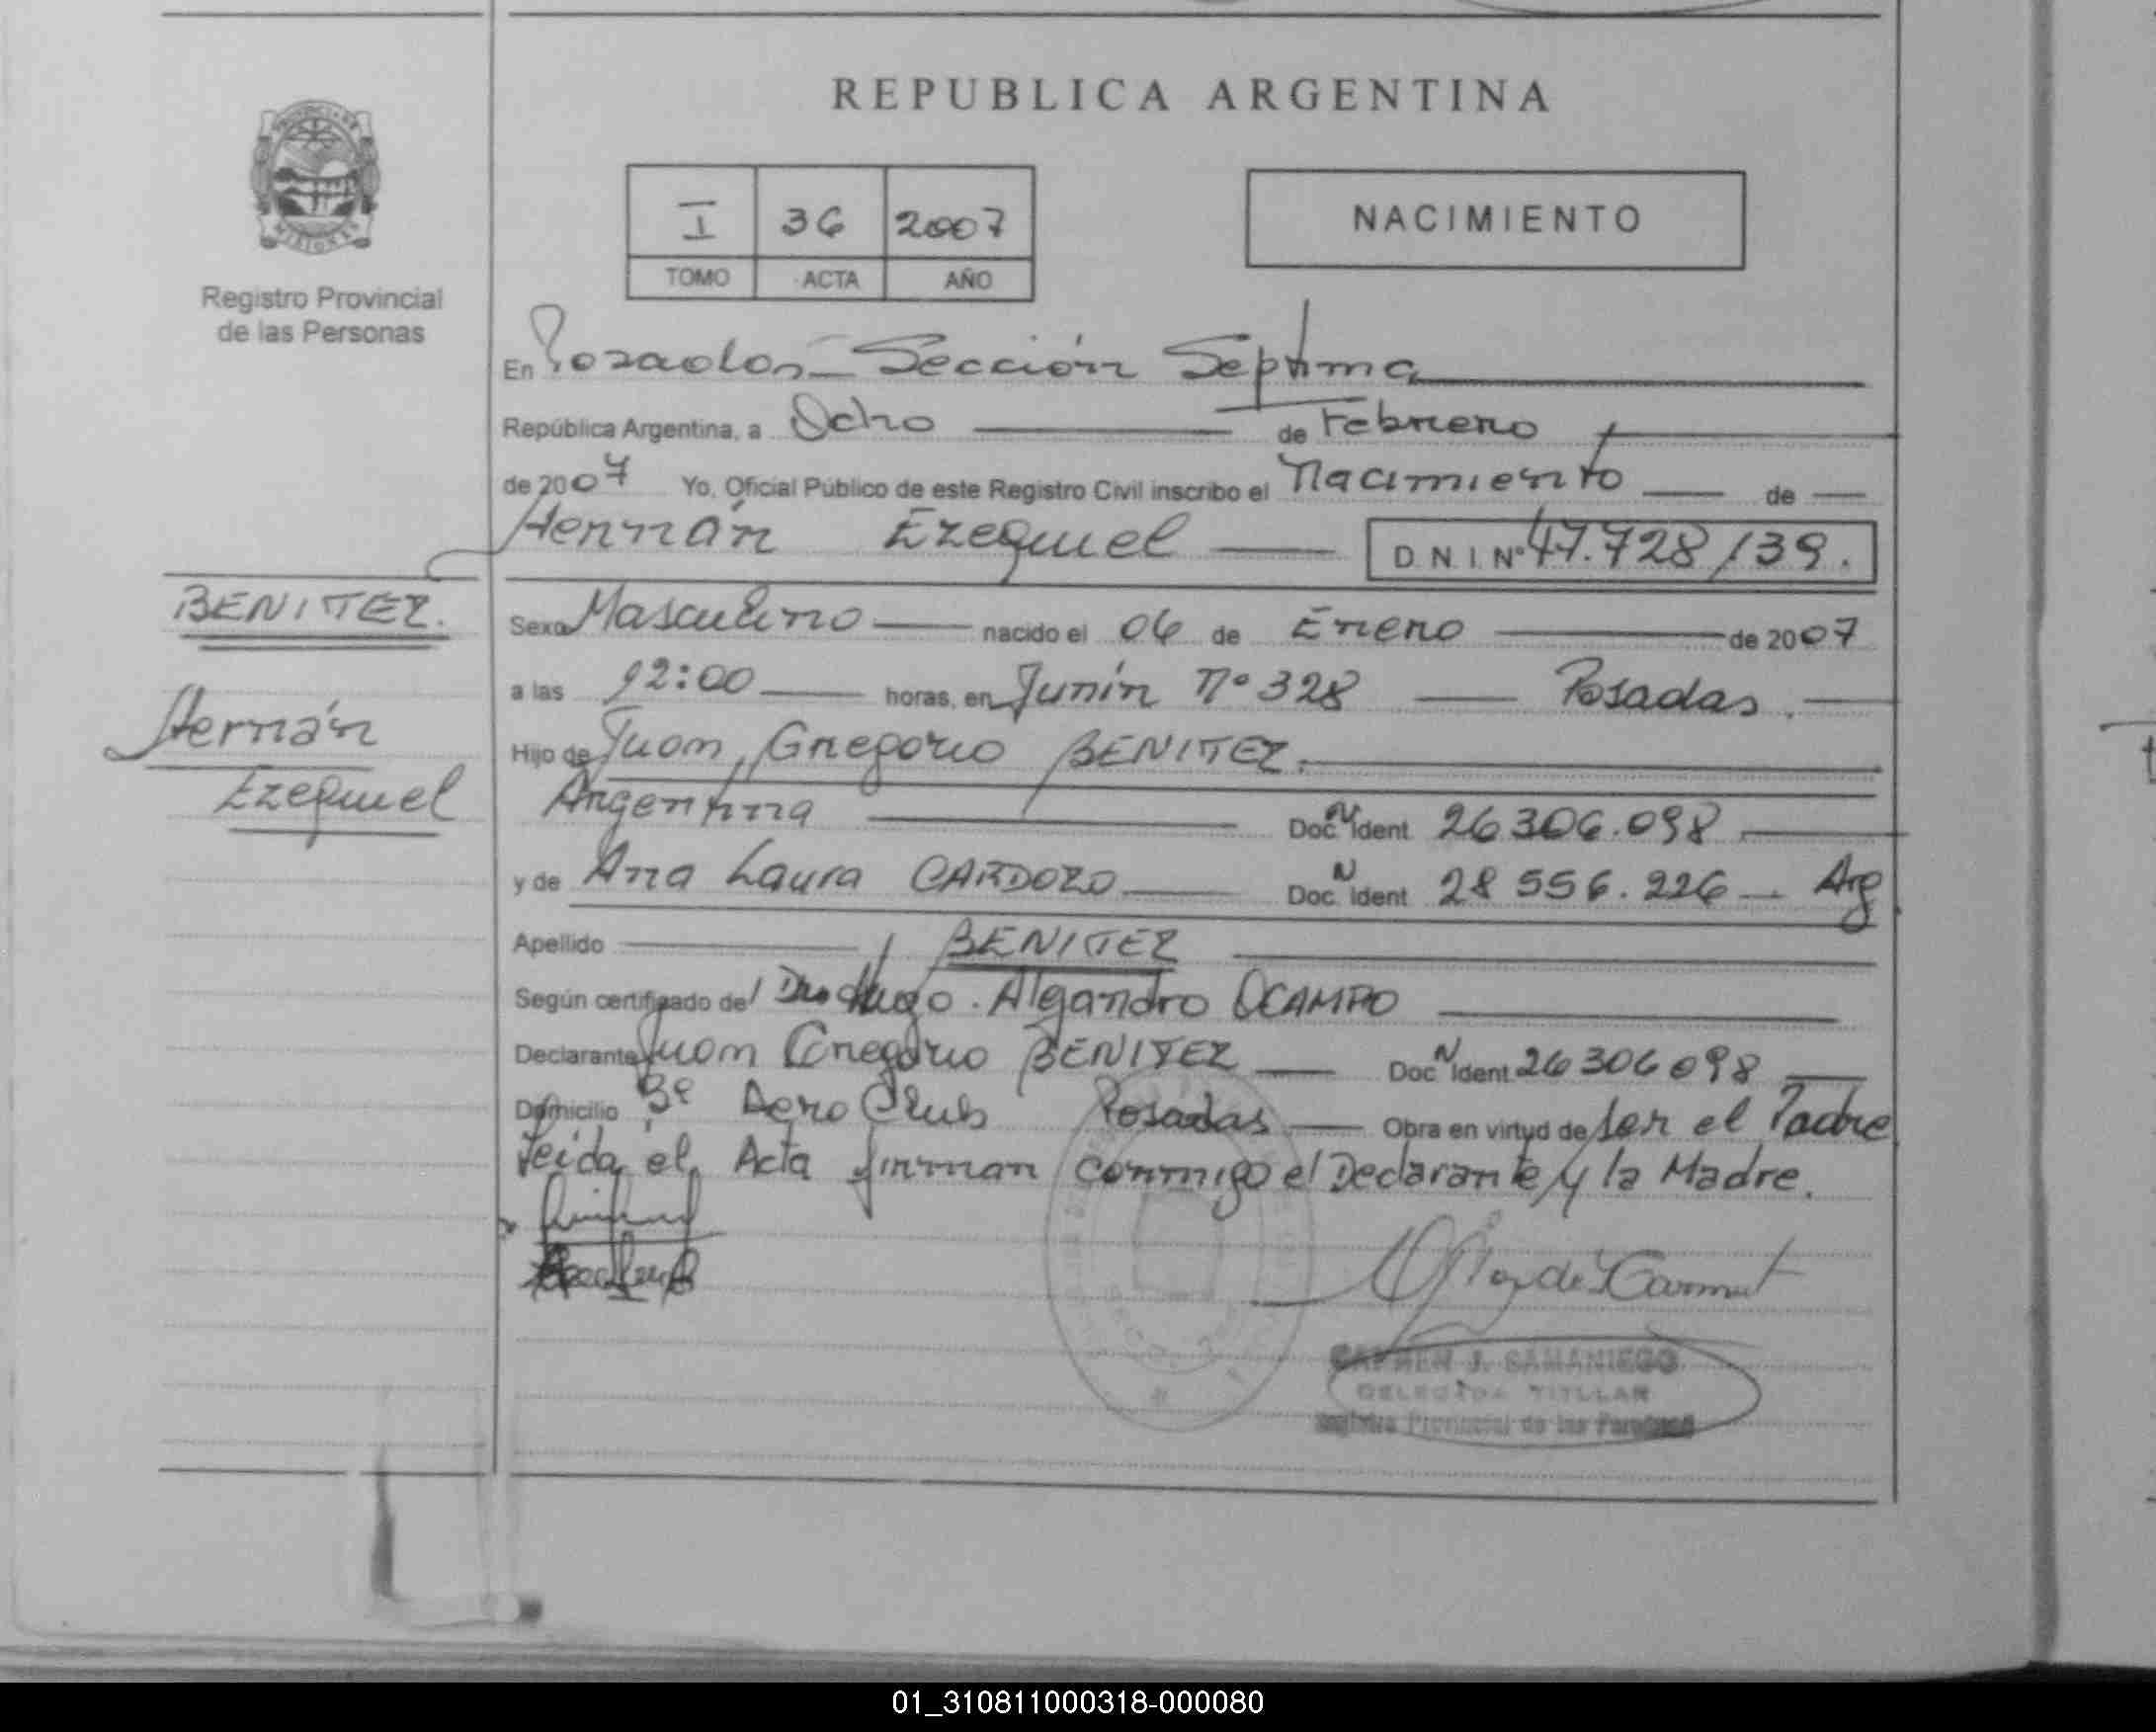 REPUBLICA ARGENTINA
I 36 2007
TOMO ACTA AÑO
NACIMIENTO
Registro Provincial
de las Personas
En Posadas - Sección Septima
República Argentina, a Ocho de Febrero
de 2007 Yo, Oficial Público de este Registro Civil inscribo el Nacimiento de
Hernán Ezequiel D.N.I. Nº 47.728139.
BENITEZ.
Hernán
Ezequiel
Sexo Masculino nacido el 06 de Enero de 2007
a las 12:00 horas, en Junín Nº 328 Posadas.
Hijo de Juan Gregorio BENITEZ.
Argentina Doc. N Ident 26306.098
y de Ana Laura CARDOZO Doc. N Ident 28 556.226 Arg
Apellido BENITEZ
Según certificado del Hugo. Alejandro OCAMPO
Declarante Juan Gregorio BENITEZ Doc. N Ident 26306098
Domicilio Bº Aero Club Posadas Obra en virtud de ser el Padre
Leida el Acta firman conmigo el Declarante y la Madre.
CARMEN J. SAMANIEGO
DELEGADA TITULAR
Registro Provincial de las Personas
01_310811000318-000080